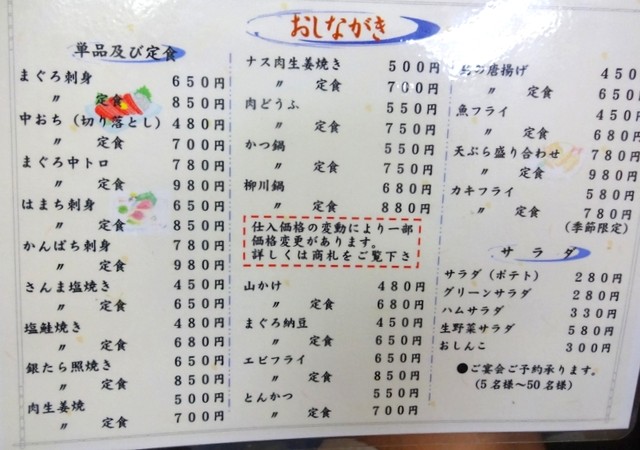 おしながき
単品及び定食
まぐろ刺身 650円
〃 定食 850円
中おち(切り落とし) 480円
〃 定食 700円
まぐろ中トロ 780円
〃 定食 980円
はまち刺身 650円
〃 定食 850円
かんぱち刺身 780円
〃 定食 980円
さんま塩焼き 450円
〃 定食 650円
塩鮭焼き 480円
〃 定食 680円
銀たら照焼き 650円
〃 定食 850円
肉生姜焼 500円
〃 定食 700円
ナス肉生姜焼き 500円
〃 定食 700円
肉どうふ 550円
〃 定食 750円
かつ鍋 550円
〃 定食 750円
柳川鍋 680円
〃 定食 880円
仕入価格の変動により一部
価格変更があります。
詳しくは商札をご覧下さ
山かけ 480円
〃 定食 680円
まぐろ納豆 450円
〃 定食 650円
エビフライ 650円
〃 定食 850円
とんかつ 550円
〃 定食 700円
の唐揚げ 450
〃 定食 650
魚フライ 450円
〃 定食 680円
天ぷら盛り合わせ 780円
〃 定食 980円
カキフライ 580円
〃 定食 780円
(季節限定)
サラダ
サラダ(ポテト) 280円
グリーンサラダ 280円
ハムサラダ 330円
生野菜サラダ 580円
おしんこ 300円
●ご宴会ご予約承ります。
(5名様～50名様)